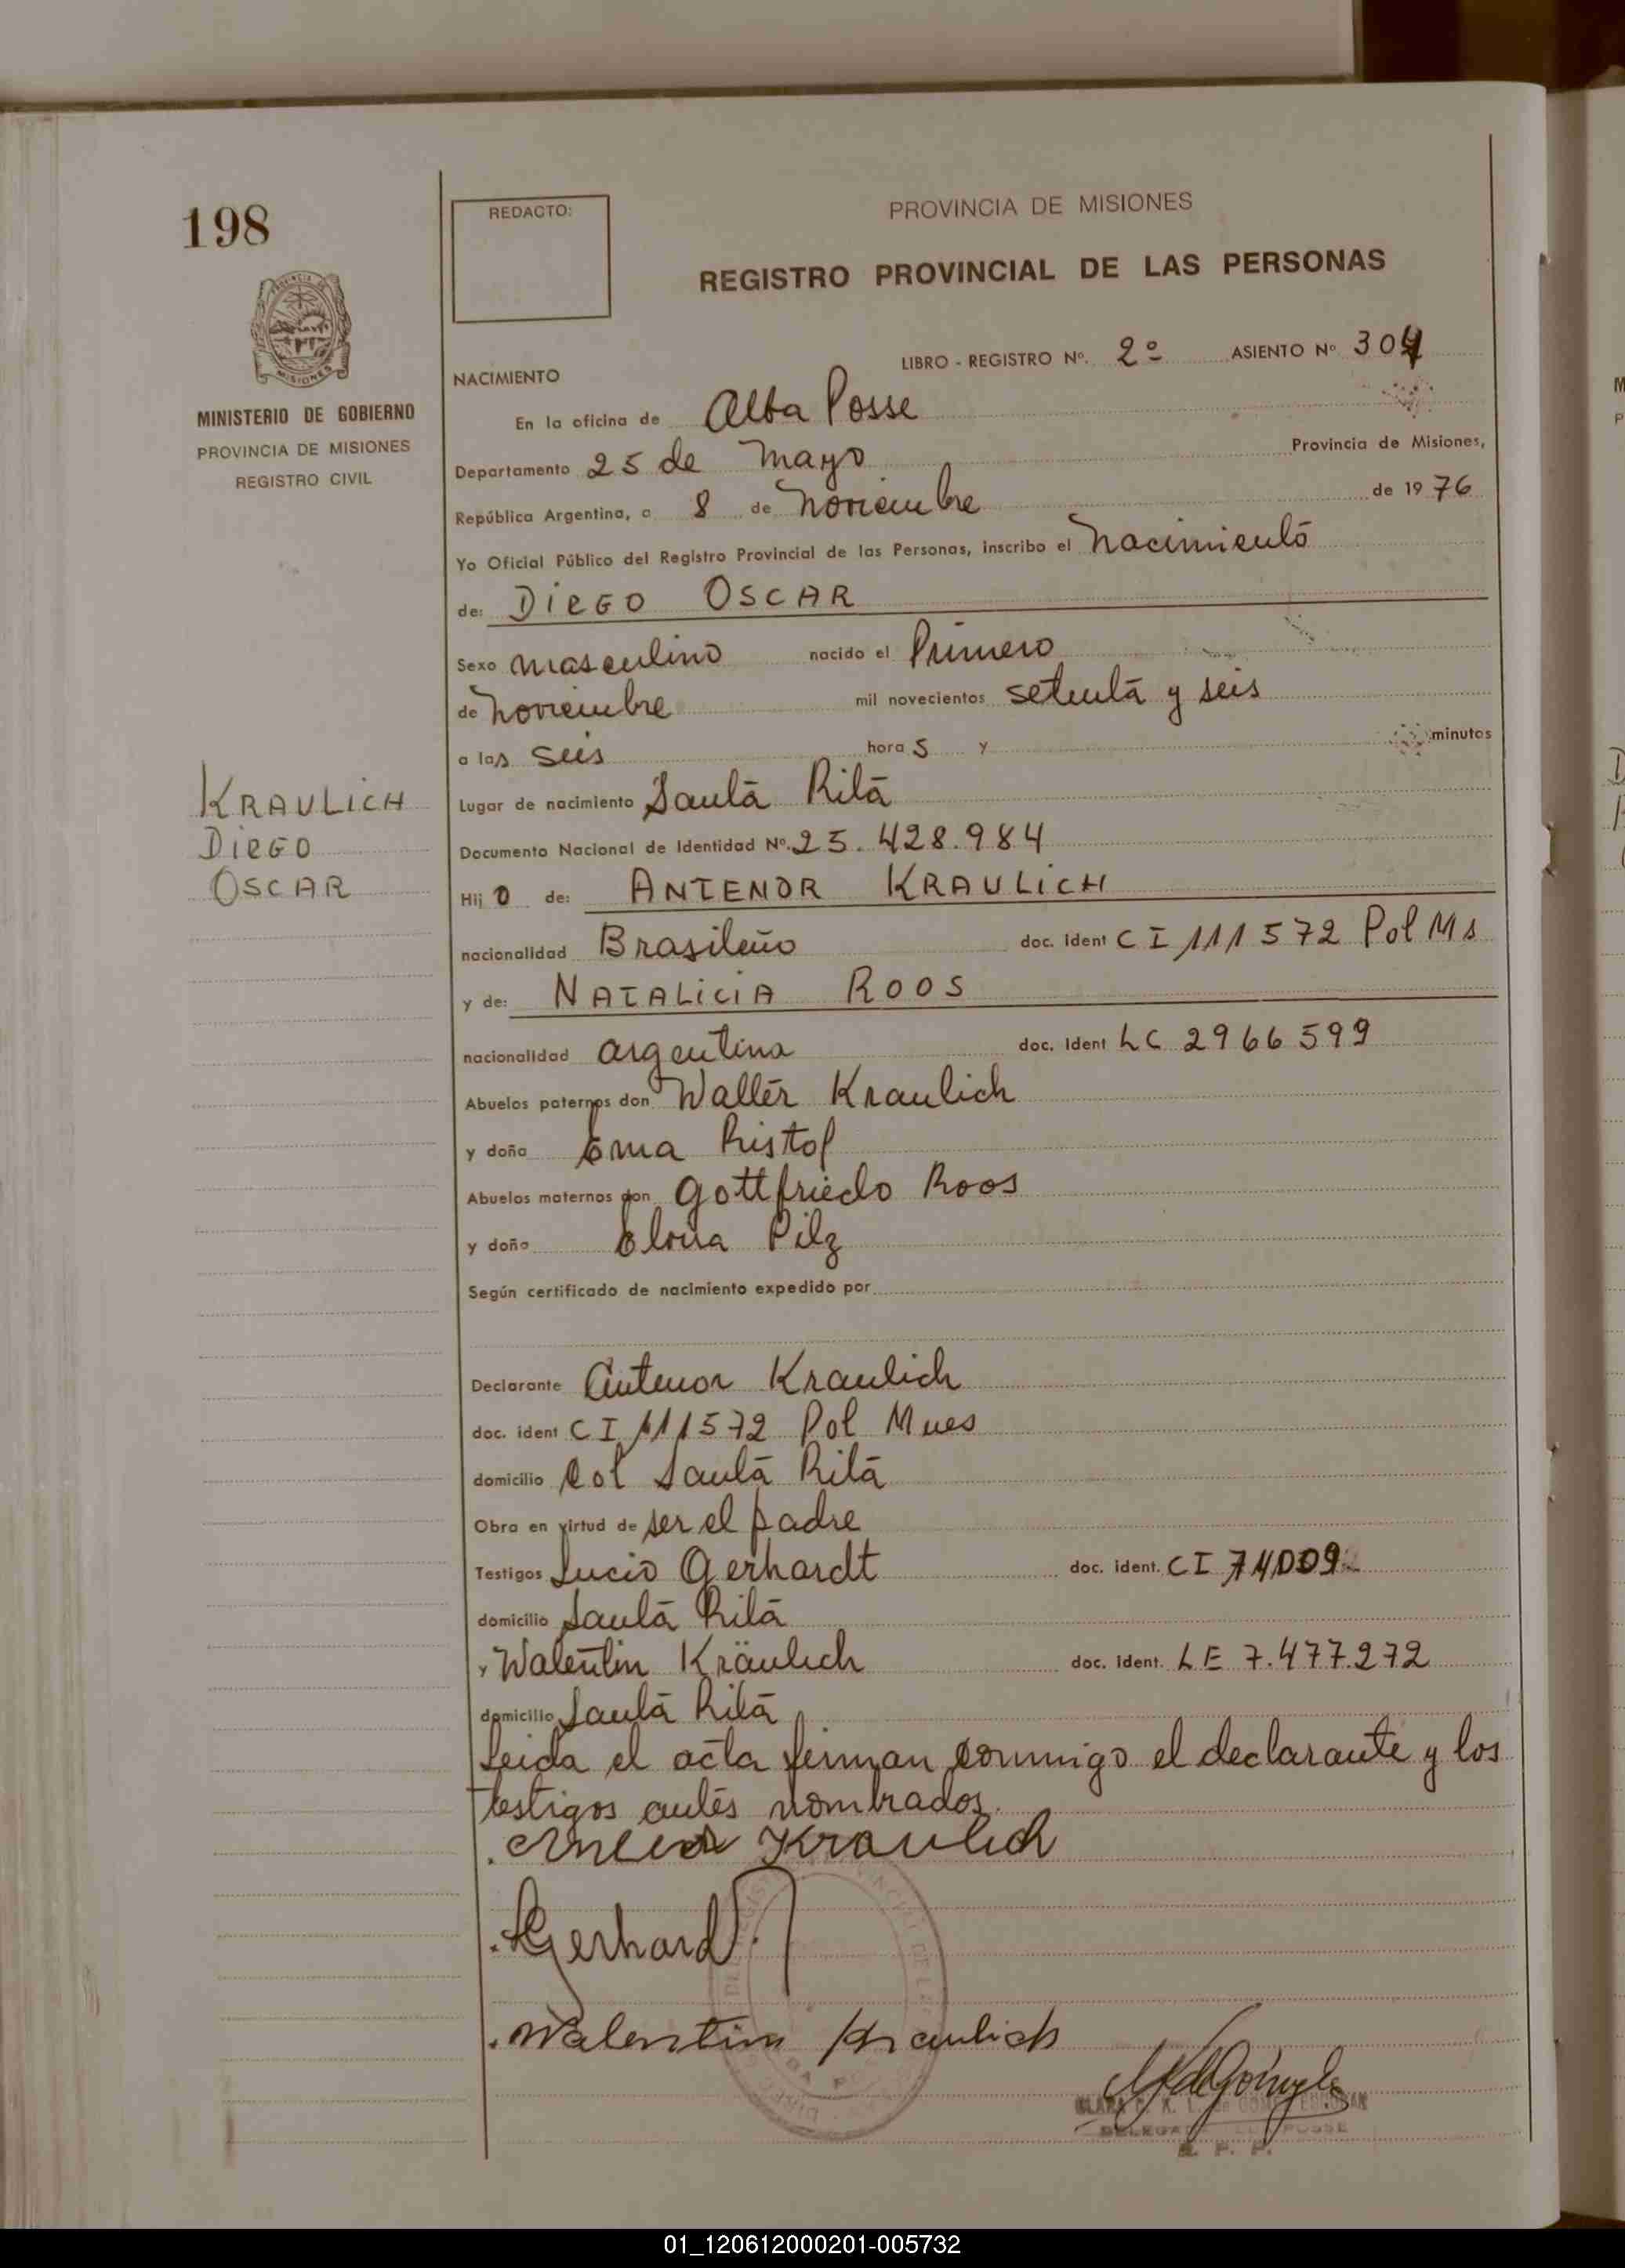 198
REDACTO:
PROVINCIA DE MISIONES
REGISTRO PROVINCIAL DE LAS PERSONAS
MINISTERIO DE GOBIERNO
PROVINCIA DE MISIONES
REGISTRO CIVIL
LIBRO - REGISTRO Nº. 2º ASIENTO Nº 304
NACIMIENTO
En la oficina de Alba Posse
Departamento 25 de Mayo Provincia de Misiones,
República Argentina, a 8 de Noviembre de 1976
Yo Oficial Público del Registro Provincial de las Personas, inscribo el Nacimiento
de: DIEGO OSCAR
Sexo masculino nacido el Primero
de Noviembre mil novecientos setenta y seis
a las seis hora s y minutos
KRAULICH
DIEGO
OSCAR
Lugar de nacimiento Santa Rita
Documento Nacional de Identidad Nº. 25.428.984
Hij o de: ANTENOR KRAULICH
nacionalidad Brasileño doc. ident CI 111572 Pol Ms
y de: NATALICIA ROOS
nacionalidad argentina doc. ident LC 2966599
Abuelos paternos don Walter Kraulich
y doña Ema Ristof
Abuelos maternos don Gottfriedo Roos
y doña Pilz
Según certificado de nacimiento expedido por
Declarante Antenor Kraulich
doc. ident CI 111572 Pol Mnes
domicilio Col Santa Rita
Obra en virtud de ser el padre
Testigos Lucio Gerhardt doc. ident. CI
domicilio Santa Rita
y Walentin Kräulich doc. ident. LE 7.477.272
domicilio Santa Rita
Leida el acta firman conmigo el declarante y los
testigos antes nombrados.
Kraulich
Gerhardt
Walentin Kraulich
01_120612000201-005732